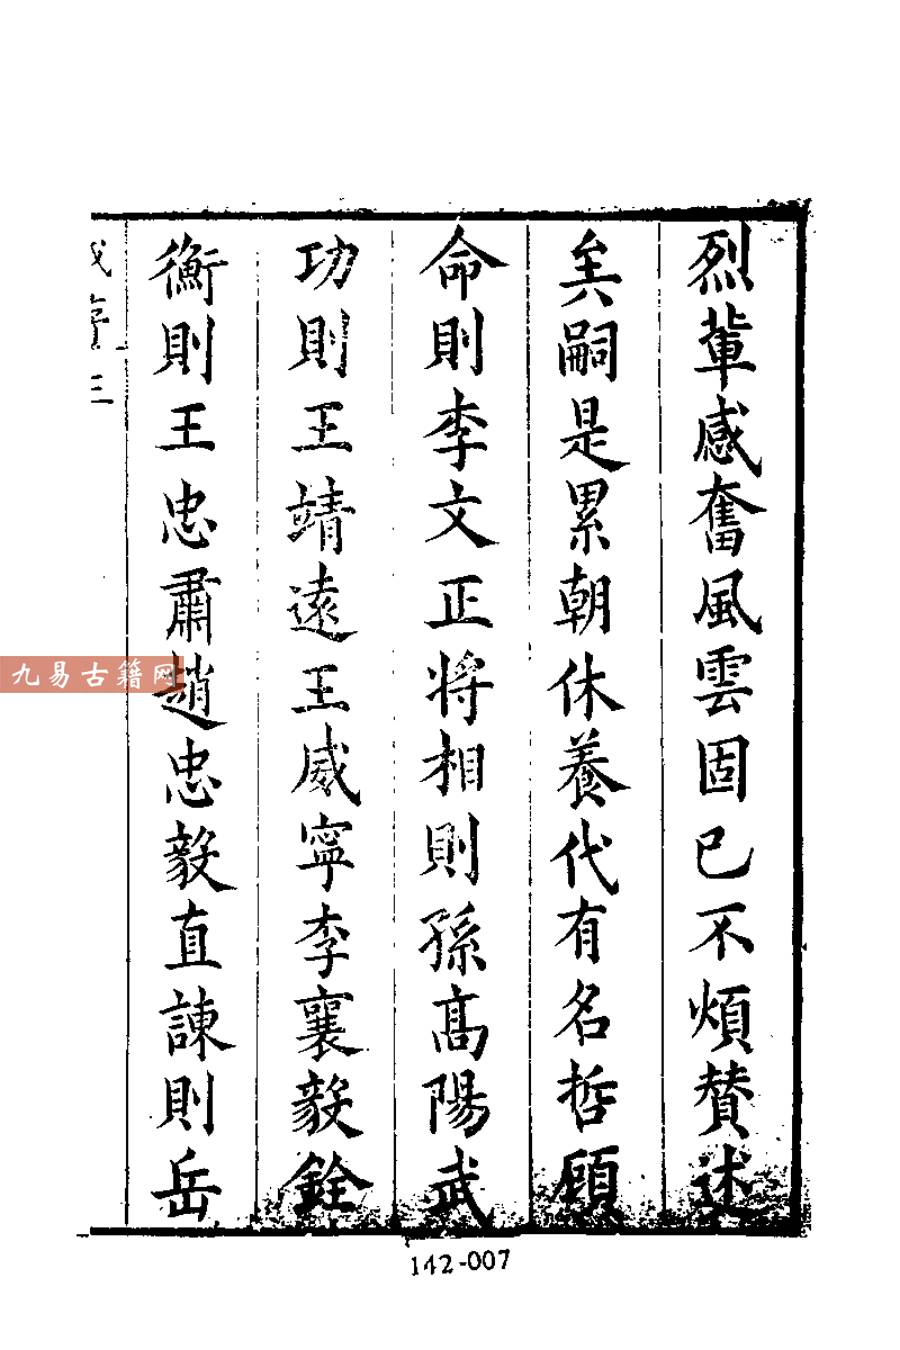 烈輩感奮風雲固已不煩贊述
矣嗣是累朝休養代有名哲顧
命則李文正將相則孫高陽武
功則王靖遠王威寧李襄毅銓
衡則王忠肅趙忠毅直諫則岳
序三
九易古籍网
142-007